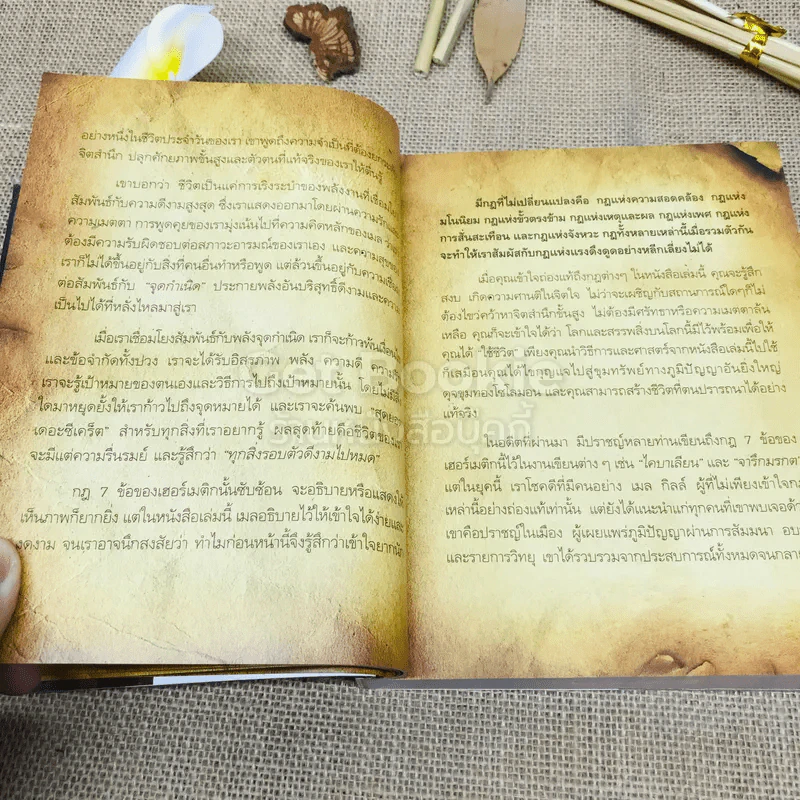 อย่างหนึ่งในชีวิตประจำวันของเรา เขาพูดถึงความจำเป็นที่ต้องยกระดับ
จิตสำนึก ปลุกศักยภาพขั้นสูงและตัวตนที่แท้จริงของเราให้ตื่นรู้
เขาบอกว่า ชีวิตเป็นแค่การเริงระบำของพลังงานที่เชื่อมโยง
สัมพันธ์กับความดีงามสูงสุด ซึ่งเราแสดงออกมาโดยผ่านความรัก
ความเมตตา การพูดคุยของเรามุ่งเน้นไปที่ความคิดหลักของเมล
ต้องมีความรับผิดชอบต่อสภาวะอารมณ์ของเราเอง และความสุขของ
เราก็ไม่ได้ขึ้นอยู่กับสิ่งที่คนอื่นทำหรือพูด แต่ล้วนขึ้นอยู่กับความเชื่อม
ต่อสัมพันธ์กับ "จุดกำเนิด" ประกายพลังอันบริสุทธิ์ดีงามและความ
เป็นไปได้ที่หลั่งไหลมาสู่เรา
เมื่อเราเชื่อมโยงสัมพันธ์กับพลังจุดกำเนิด เราก็จะก้าวพ้น
และข้อจำกัดทั้งปวง เราจะได้รับอิสรภาพ พลัง ความดี ความ
เราจะรู้เป้าหมายของตนเองและวิธีการไปถึงเป้าหมายนั้น โดยไม่มี
ใดมาหยุดยั้งให้เราก้าวไปถึงจุดหมายได้ และเราจะค้นพบ "สุดยอด
เดอะซีเคร็ต" สำหรับทุกสิ่งที่เราอยากรู้ ผลสุดท้ายคือชีวิตของเรา
จะมีแต่ความรื่นรมย์ และรู้สึกว่า "ทุกสิ่งรอบตัวดีงามไปหมด"
กฎ 7 ข้อของเฮอร์เมติกนั้นซับซ้อน จะอธิบายหรือแสดงให้
เห็นภาพก็ยากยิ่ง แต่ในหนังสือเล่มนี้ เมลอธิบายไว้ให้เข้าใจได้ง่ายและ
งดงาม จนเราอาจนึกสงสัยว่า ทำไมก่อนหน้านี้จึงรู้สึกว่าเข้าใจยากนัก
มีกฎที่ไม่เปลี่ยนแปลงคือ กฎแห่งความสอดคล้อง กฎแห่ง
มโนนิยม กฎแห่งขั้วตรงข้าม กฎแห่งเหตุและผล กฎแห่งเพศ กฎแห่ง
การสั่นสะเทือน และกฎแห่งจังหวะ กฎทั้งหลายเหล่านี้เมื่อรวมตัวกัน
จะทำให้เราสัมผัสกับกฎแห่งแรงดึงดูดอย่างหลีกเลี่ยงไม่ได้
เมื่อคุณเข้าใจถ่องแท้ถึงกฎต่างๆ ในหนังสือเล่มนี้ คุณจะรู้สึก
สงบ เกิดความศานติในจิตใจ ไม่ว่าจะเผชิญกับสถานการณ์ใดๆก็ไม่
ต้องไขว่คว้าหาจิตสำนึกขั้นสูง ไม่ต้องมีศรัทธาหรือความเมตตาล้น
เหลือ คุณก็จะเข้าใจได้ว่า โลกและสรรพสิ่งบนโลกนี้มีไว้พร้อมเพื่อให้
คุณได้ "ใช้ชีวิต" เพียงคุณนำวิธีการและศาสตร์จากหนังสือเล่มนี้ไปใช้
ก็เสมือนคุณได้ไขกุญแจไปสู่ขุมทรัพย์ทางภูมิปัญญาอันยิ่งใหญ่
ดุจขุมทองโซโลมอน และคุณสามารถสร้างชีวิตที่ตนปรารถนาได้อย่าง
แท้จริง
ในอดีตที่ผ่านมา มีปราชญ์หลายท่านเขียนถึงกฎ 7 ข้อของ
เฮอร์เมติกนี้ไว้ในงานเขียนต่าง ๆ เช่น "ไคบาเลียน" และ "จารึกมรกต"
แต่ในยุคนี้ เราโชคดีที่มีคนอย่าง เมล กิลล์ ผู้ที่ไม่เพียงเข้าใจกฎ
เหล่านี้อย่างถ่องแท้เท่านั้น แต่ยังได้แนะนำแก่ทุกคนที่เขาพบเจอด้วย
เขาคือปราชญ์ในเมือง ผู้เผยแพร่ภูมิปัญญาผ่านการสัมมนา อบรม
และรายการวิทยุ เขาได้รวบรวมจากประสบการณ์ทั้งหมดจนกลาย